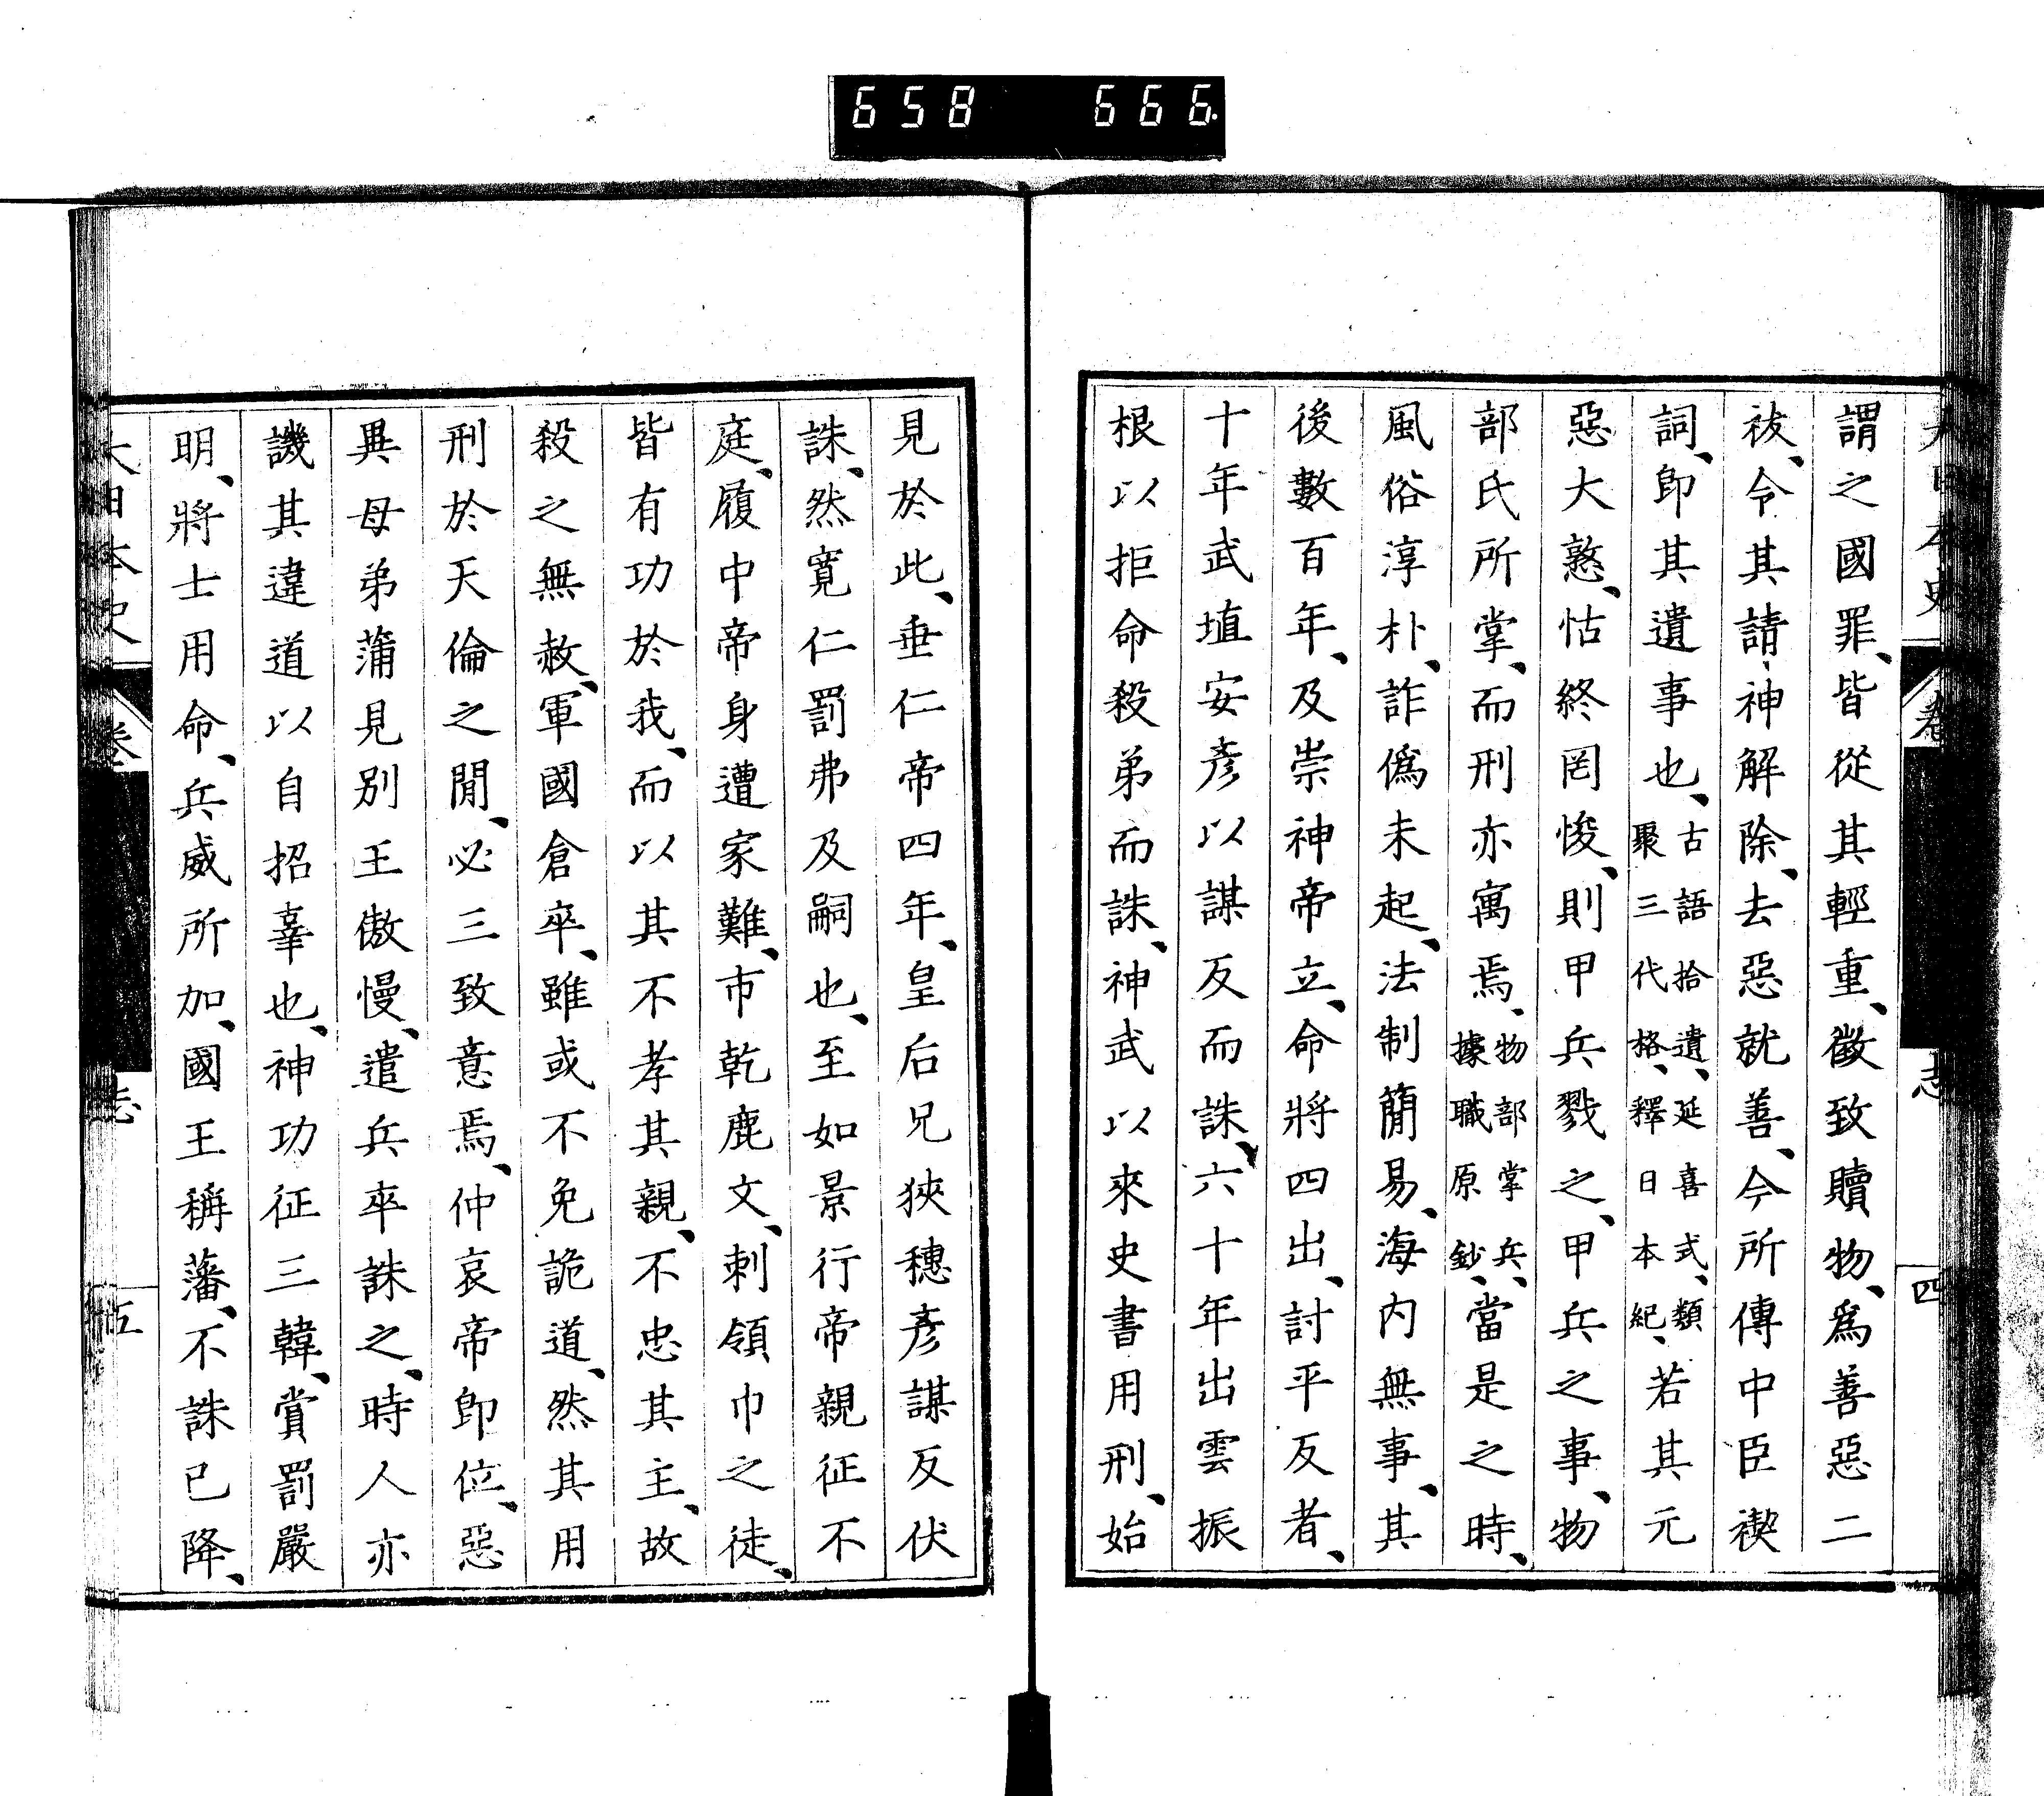 658 666
謂之國罪、皆從其輕重、徵致贖物、爲善惡二
祓、令其請神解除、去惡就善、今所傳中臣禊
詞、卽其遺事也、古語拾遺、延喜式、類聚三代格、釋日本紀、若其元
惡大憝、怙終罔悛、則甲兵戮之、甲兵之事、物
部氏所掌、而刑亦寓焉、物部掌兵、據職原鈔、當是之時、
風俗淳朴、詐僞未起、法制簡易、海內無事、其
後數百年、及崇神帝立、命將四出、討平反者、
十年武埴安彥以謀反而誅、六十年出雲振
根以拒命殺弟而誅、神武以來史書用刑、始
見於此、垂仁帝四年、皇后兄狹穗彥謀反伏
誅、然寬仁罰弗及嗣也、至如景行帝親征不
庭、履中帝身遭家難、市乾鹿文、刺領巾之徒、
皆有功於我、而以其不孝其親、不忠其主、故
殺之無赦、軍國倉卒、雖或不免詭道、然其用
刑於天倫之閒、必三致意焉、仲哀帝卽位、惡
異母弟蒲見別王傲慢、遣兵卒誅之、時人亦
譏其違道以自招辜也、神功征三韓、賞罰嚴
明、將士用命、兵威所加、國王稱藩、不誅已降、
大日本史 卷 志 五